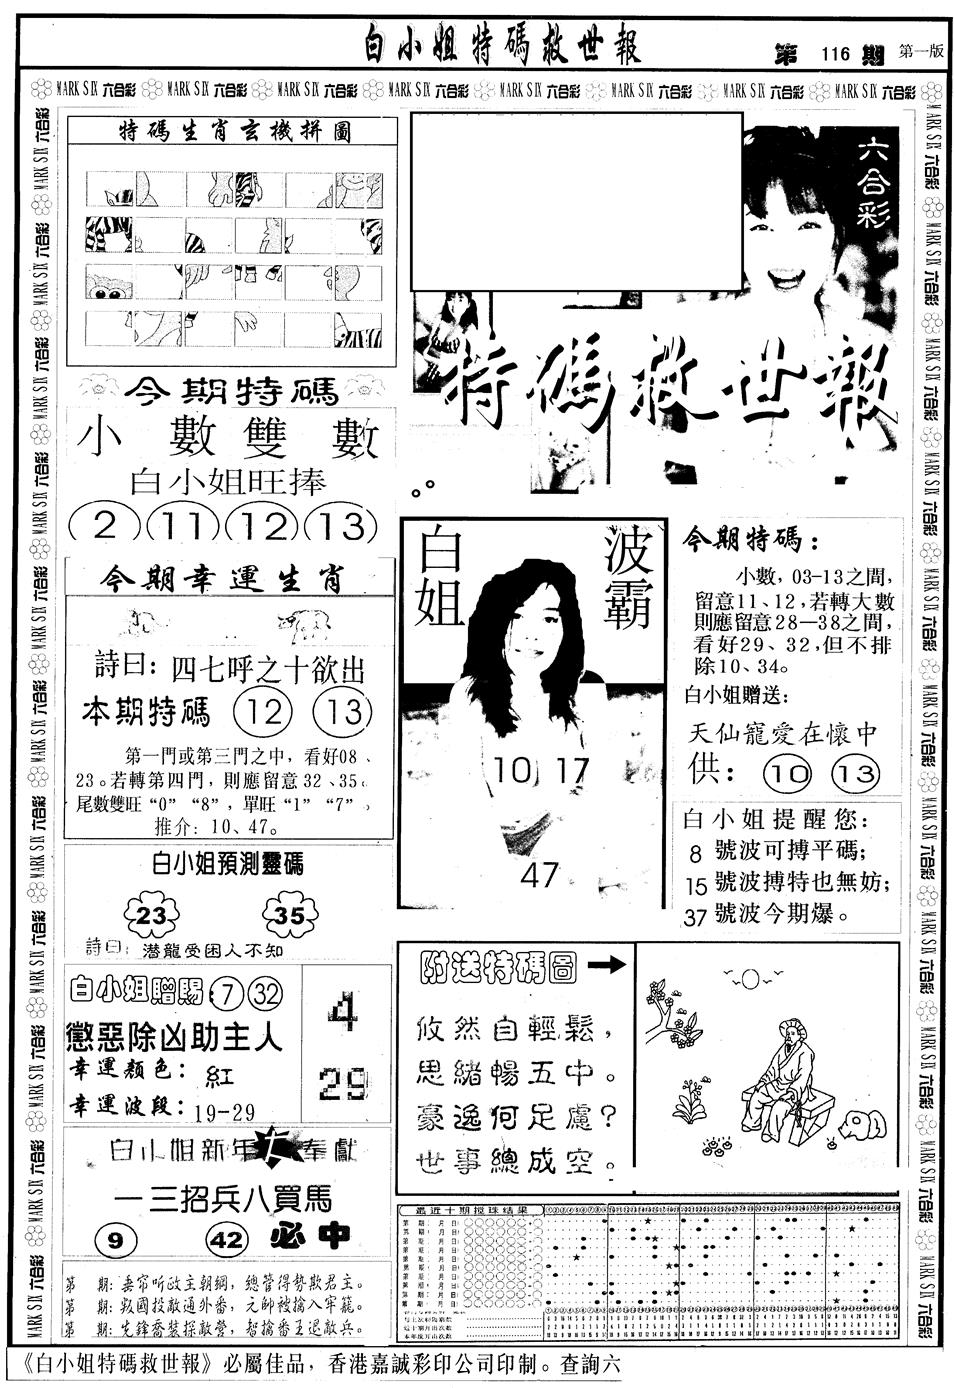 白小姐特碼救世報
第 116 期 第一版
MARK SIX 六合彩 MARK SIX 六合彩 MARK SIX 六合彩 MARK SIX 六合彩 MARK SIX 六合彩 MARK SIX 六合彩 MARK SIX 六合彩 MARK SIX 六合彩
特碼生肖玄機拼圖
今期特碼
小數雙數
白小姐旺捧
2 11 12 13
今期幸運生肖
詩曰: 四七呼之十欲出
本期特碼 12 13
第一門或第三門之中，看好08、
23。若轉第四門，則應留意32、35。
尾數雙旺“0”“8”，單旺“1”“7”。
推介: 10、47。
白小姐預測靈碼
23 35
詩曰: 潛龍受困人不知
白小姐贈賜: 7 32
懲惡除凶助主人
幸運顏色: 紅
幸運波段: 19-29
4
29
白小姐新年大奉獻
一三招兵八買馬
9 42 必中
第 期: 垂帘听政主朝綱，總管得勢欺君主。
第 期: 叛國投敵通外番，元帥被擒入牢籠。
第 期: 先鋒喬裝探敵營，智擒番王退敵兵。
六合彩
特碼救世報
白姐 波霸
10 17
47
今期特碼:
小數，03-13之間，
留意11、12，若轉大數
則應留意28—38之間，
看好29、32，但不排
除10、34。
白小姐贈送:
天仙寵愛在懷中
供: 10 13
白小姐提醒您:
8 號波可搏平碼;
15 號波搏特也無妨;
37 號波今期爆。
附送特碼圖
攸然自輕鬆，
思緒暢五中。
豪逸何足慮?
世事總成空。
最近十期搅珠结果
《白小姐特碼救世報》必屬佳品，香港嘉誠彩印公司印制。查詢六